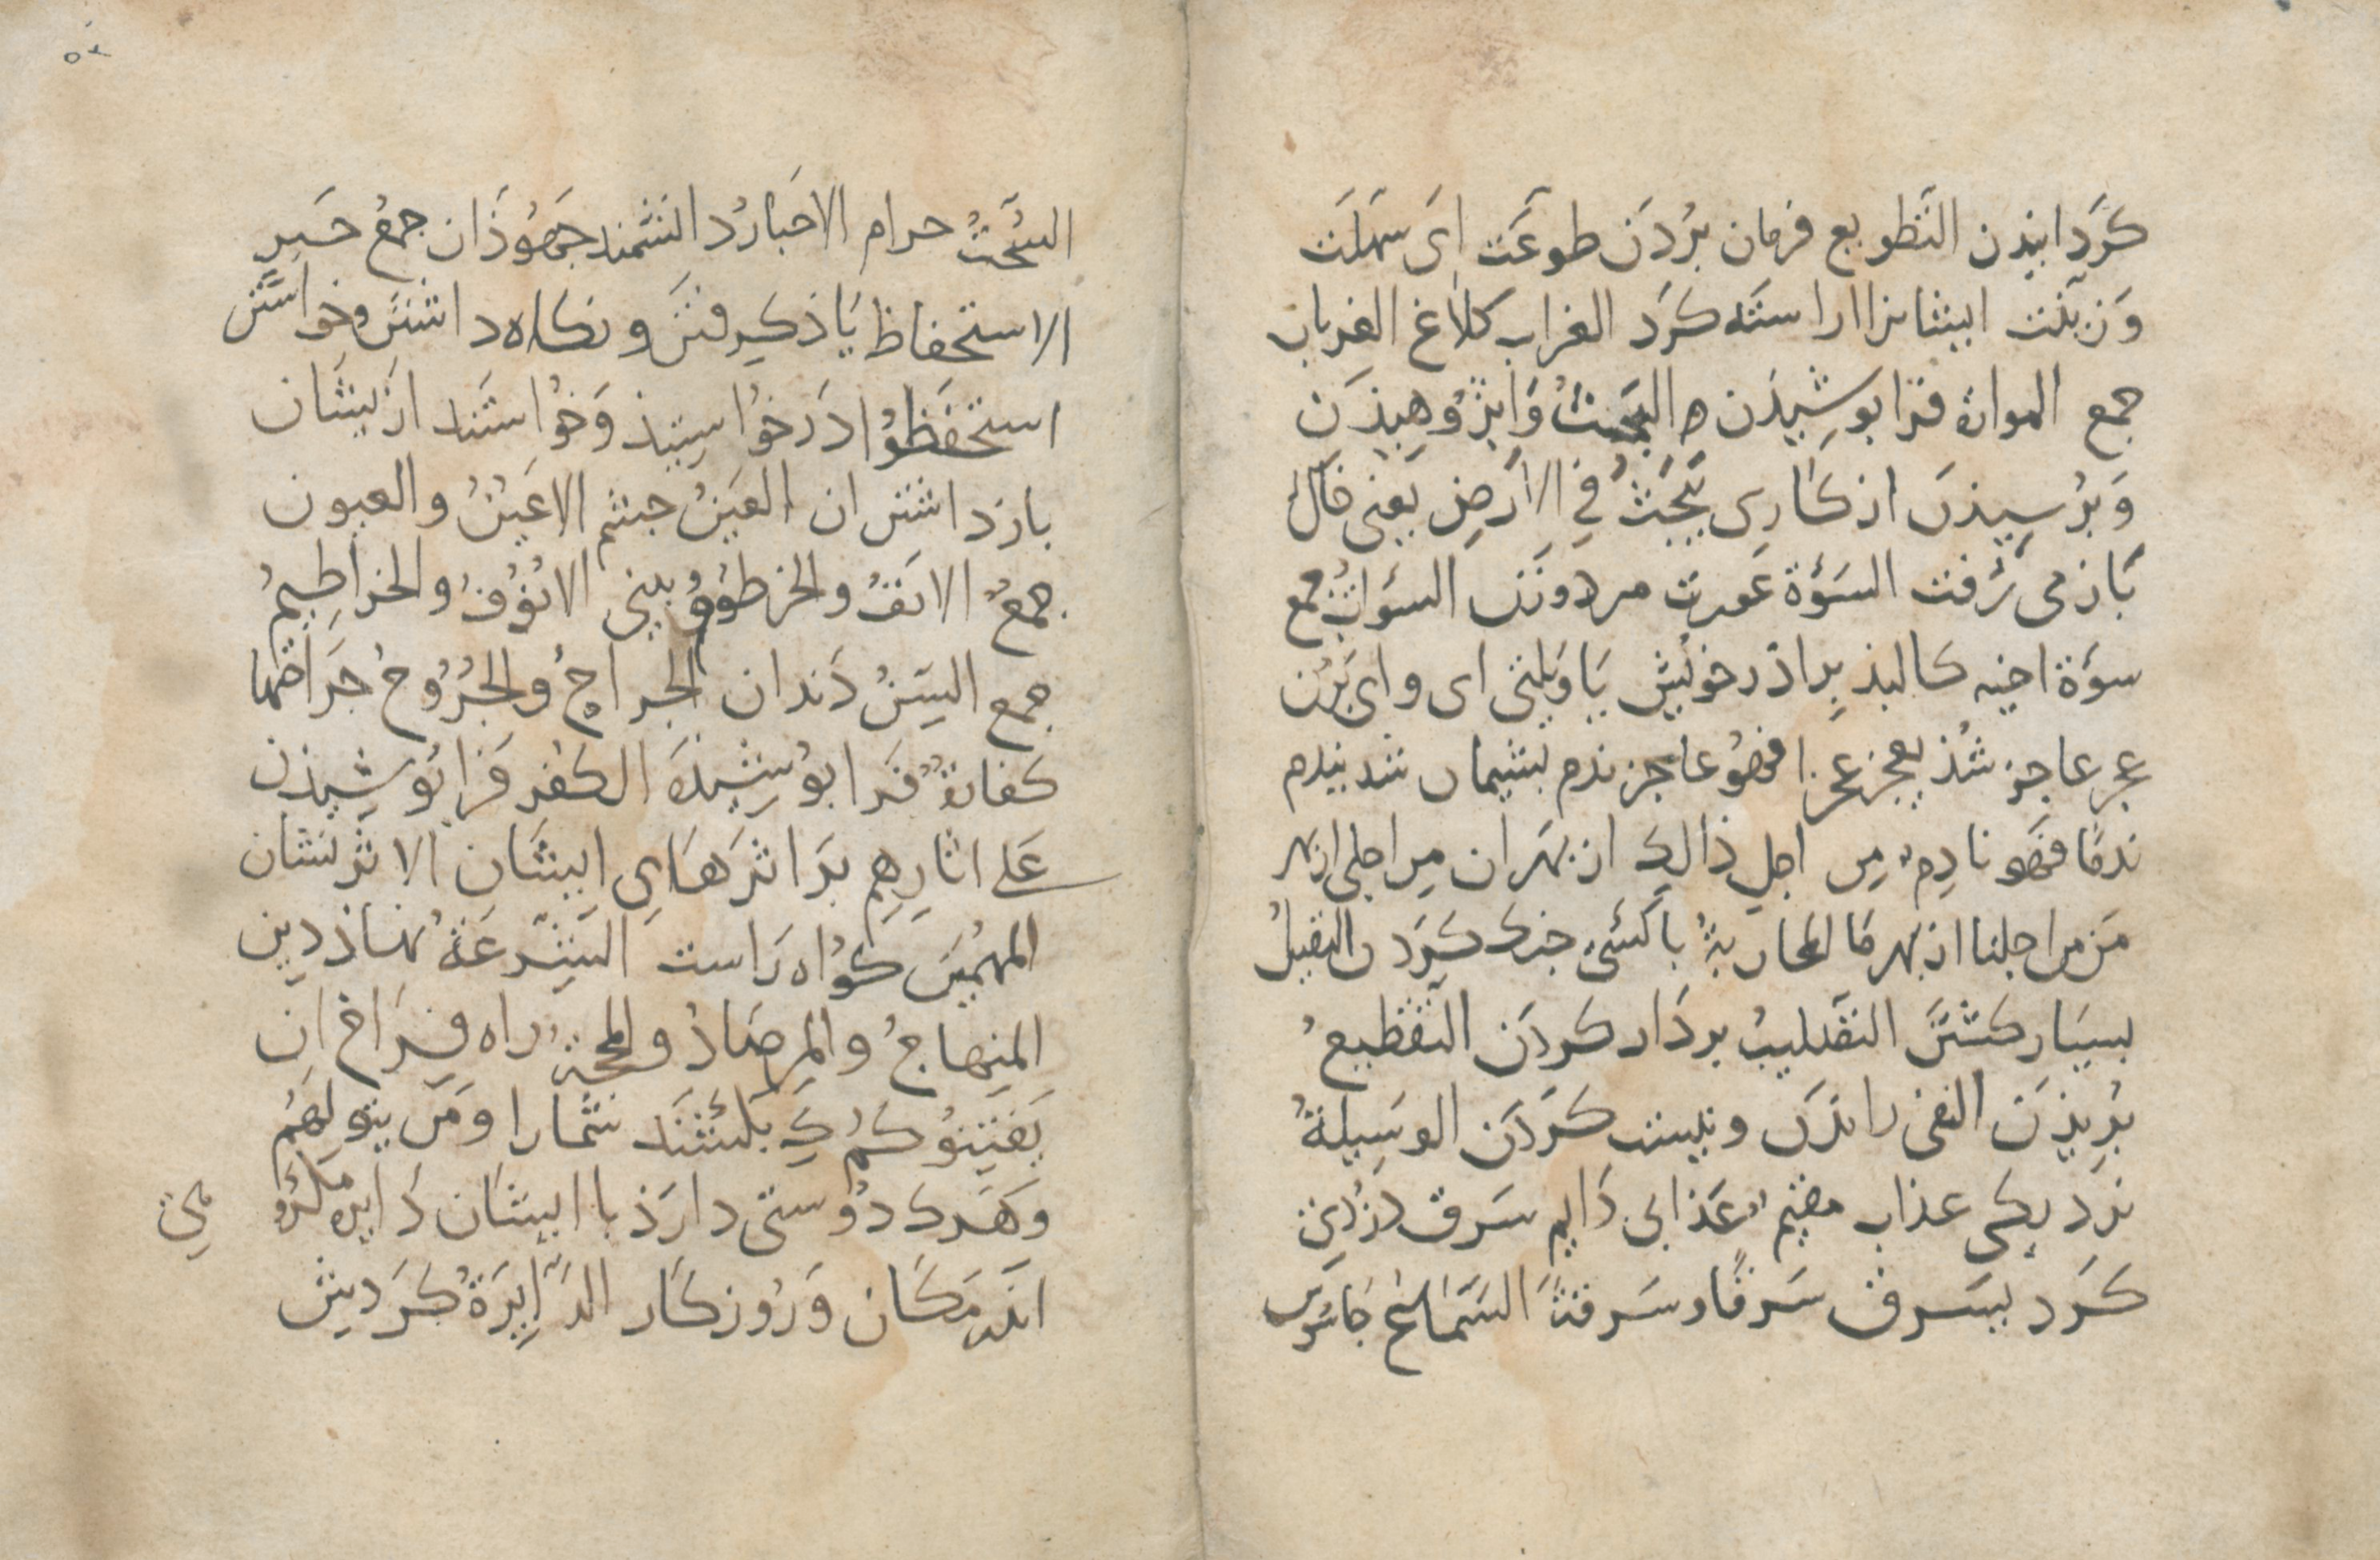 كَردانيذن التَّطويع فرمان بُردَن طوعَت اَى سَهلَت
وَزينت ايشانرا اراسته كَرد الغراب كلاغ الغربان
جمع المواراة فرا پوشيذن البَحثُ وَاپژوهيذَن
وَپُرسِيذن از كارى يَبحَثُ فِي الاَرضِ يَعنى خاك
بَاز مى رُفت السَوْءة عَورت مرد و زن السَوْات جمع
سوءة اخيه كالبذ برِاذر خويش يَا وَيلتى اى واى بَر من
عجز عاجز شذ يعجز عجزا فهوُ عاجز ندم پشيمان شد يندم
ندمًا فهَو نادِم مِن اجل ذالِك از بهر ان مِن اجلى از بهر
مَن من اجلنا از بهر مَا المحاربةُ با كَسى جنك كردن التقتيلُ
بسيَار كشتَن التصَليبُ بر دَار كردَن التقطيعُ
بُرِيذَن النفى راندَن و نيست كَردَن الوَسِيلةُ
نزديكى عذاب مقيمٌ عَذابى دَايم سَرق دُزدِى
كَرد يسَرق سَرقًا و سَرقةً السَّمَّاعُ جَاسُوس
السُّحتُ حرام الاحَبار دانشمند جَهُوذان جمعُ حَبرِ
الاستحفاظ يَاذ كيرفتن و نكاه داشتن و خواستن
استحفظوُا دَر خواسيتيذ وَخوُاستند از يشَان
باز داشتن ان العَينُ چشم الاعَيُنُ و العيون
جمعُ الانَفُ و الخرطوُمُ بينى الانُوُفُ و الخراطِيمُ
جمع السِنُ دَندان الجراحُ و الجُرُوُحُ جَراحتها
كفارةٌ فرا پوُشِيذَه الكفر فرا پوُشيذن
عَلى اثارِهِم بَر اثرهَاىِ ايشَان الاثر نشان
المهُيمن كوُاه رَاست الشِّرعَةُ نهاذ دين
المنِهاجُ و المرِصَادُ و المحجّةُ راه فِرَاخ ان
يَفتِنوُكُم كِ شمُارا وَمَن يتولهُم
وَهَرك دوُستى دارَذ با ايشَان دَايرةٌ
اندَر مَكَان وَرُوزكَار الدَّايِرَةُ كَردِش